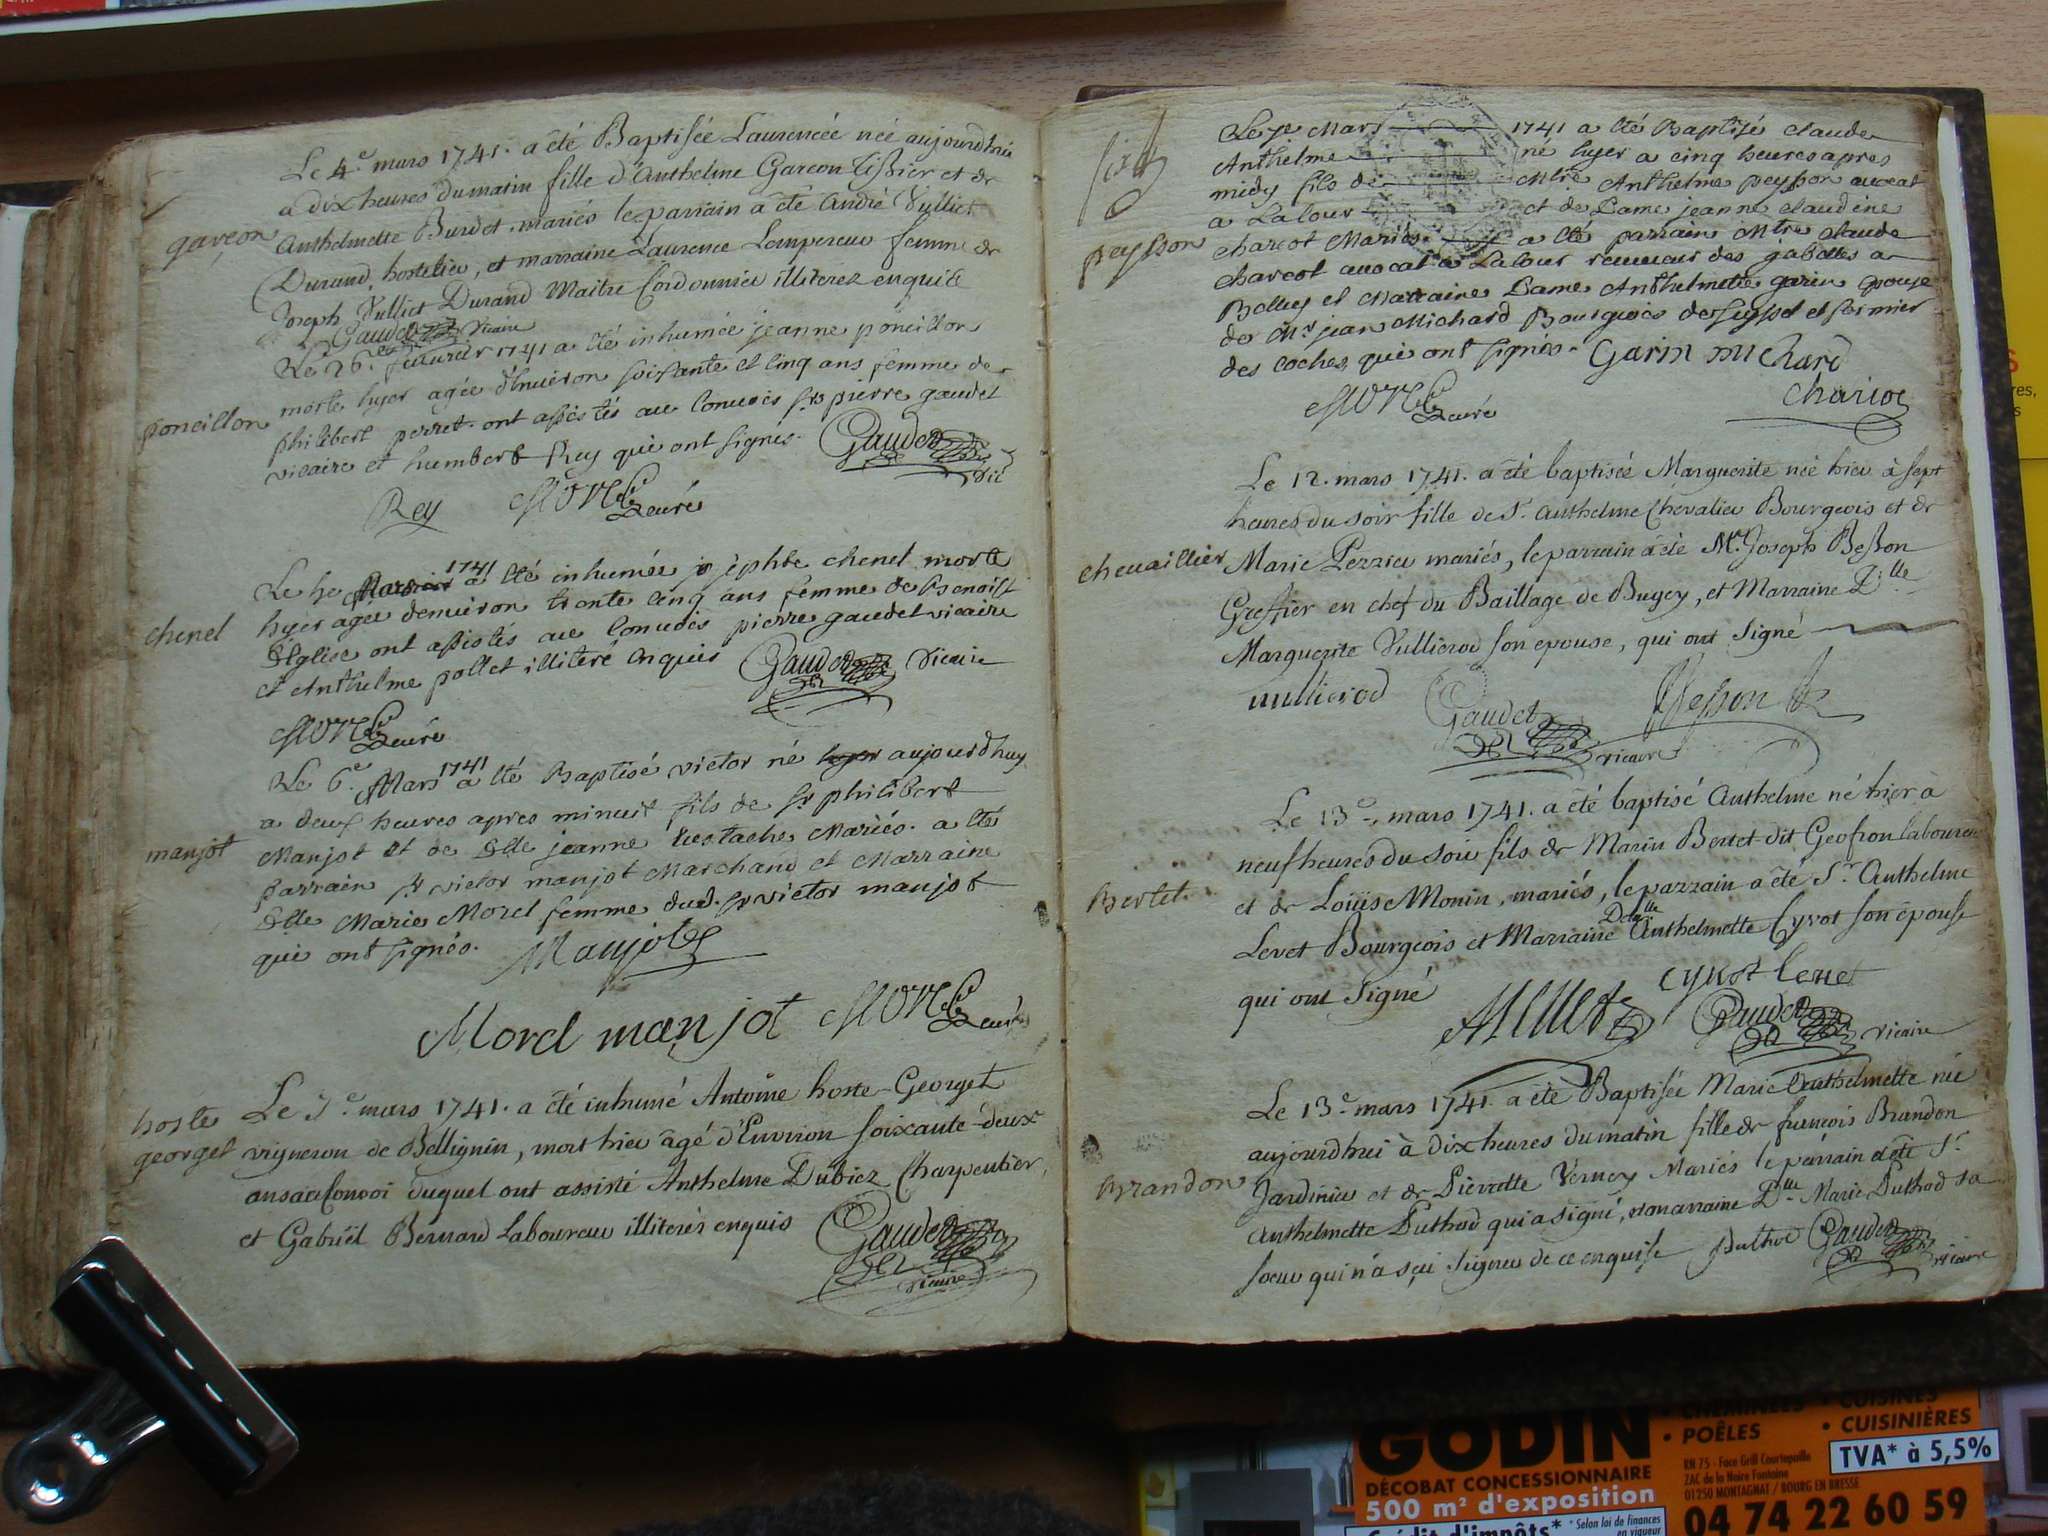 Le 4e mars 1741. a été Baptisée Laurencée née aujourdhui
a dix heures du matin fille d'Anthelme Garcon Tissier et de
garçon
Anthelmette Burdet mariés le parrain a été André Vulliet
Durand, hostelier, et marraine Laurence Lempereur femme de
Joseph Vulliet Durand Maitre Cordonnier illiterez enquis
Gaudet vicaire
Le 26e feuvrier 1741 a été inhumée jeanne poncillon
morte hyer agée d'enuiron soisante et cinq ans femme de
poncillon
philibert perret. ont assistés au conuois sr pierre gaudet
vicaire et humbert Rey qui ont signés. Gaudet
vic
Rey Morel curé
1741
Le he a été inhumée josephte chenel morte
hyer agée denuiron trente cinq ans femme de Benoist
chenel
Eglise ont assistés au conuois pierre gaudet vicaire
et Anthelme pollet illiteré enquis Gaudet vicaire
Morel curé
1741
Le 6e Mars a été Baptisé victor né hyer aujourdhuy
a deux heures apres minuit fils de sr philibert
manjot
Manjot et de Dlle jeanne Eustache Mariés. a été
parrain sr victor manjot Marchand et Marraine
Dlle Marie Morel femme dud. sr victor manjot
qui ont signés. Manjot
Morel manjot Morel curé
Le 7e mars 1741. a été inhumé Antoine hoste-Georget
hoste
georget
vigneron de Bellignin, mort hier âgé d'Environ soixante-deux
ans au convoi duquel ont assisté Anthelme Dubiez Charpentier,
et Gabriël Bernard Laboureur illiterés enquis Gaudet
vicaire
six
Le 7e Mars 1741 a été Baptisé claude
Anthelme né hyer a cinq heures apres
midy fils de Mtre Anthelme peysson auocat
peysson
a La Cour et de Dame jeanne claudine
charcot Mariés. a été parrain Mtre claude
charcot auocat a La Cour receueur des gabelles a
Belley et Marraine Dame Anthelmette garin epouse
de Mr jean Michard Bourgeois de Seyssel et fermier
des coches qui ont signés. Garin michard
Morel curé charcot
Le 12. mars 1741. a été baptisée Marguerite née hier à sept
heures du soir fille de Sr. Anthelme Chevalier Bourgeois et de
cheuaillier
Marie Pezzieu mariés, le parrain a été Mr. Joseph Besson
Greffier en chef du Baillage de Bugey, et Marraine Dlle
Marguerite Vullierod son epouse, qui ont Signé
uullierod Gaudet Besson
vicaire
Le 13e. mars 1741. a été baptisé Anthelme né hier à
neuf heures du soir fils de Marin Bertet dit Geofron laboureur
Bertet.
et de Loüise Monin, mariés, le parrain a été Sr. Anthelme
Delle
Levet Bourgeois et Marraine Anthelmette Cyvot son épouse
qui ont Signé
cyuot leuet
ALeuet Gaudet vicaire
Le 13e mars 1741. a été Baptisée Marie Anthelmette née
aujourdhui à dix heures du matin fille de françois Brandon
Brrandon
Jardinier et de Pierrette Verney Mariés le parrain a été Sr
Anthelmette Duthod qui a signé, et marraine Dlle Marie Duthod sa
soeur qui n'a sçu signer de ce enquise Duthod Gaudet
vicaire
GODIN
• CHEMINÉES
• POÊLES
• CUISINES
• CUISINIÈRES
DÉCOBAT CONCESSIONNAIRE
500 m² d'exposition
RN 75 - Face Grill Courtepaille
ZAC de la Noire Fontaine
01250 MONTAGNAT / BOURG EN BRESSE
TVA* à 5,5%
04 74 22 60 59
Crédit d'impôts*
* Selon loi de finances
en vigueur